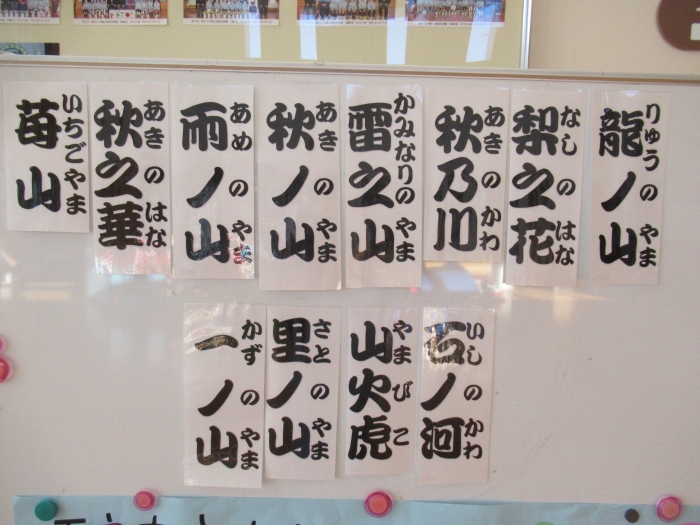 龍ノ山
りゅうのやま
梨之花
なしのはな
秋乃川
あきのかわ
雷之山
かみなりのやま
秋ノ山
あきのやま
雨ノ山
あめのやま
秋之華
あきのはな
苺山
いちごやま
石ノ河
いしのかわ
山火虎
やまびこ
里ノ山
さとのやま
一ノ山
かずのやま